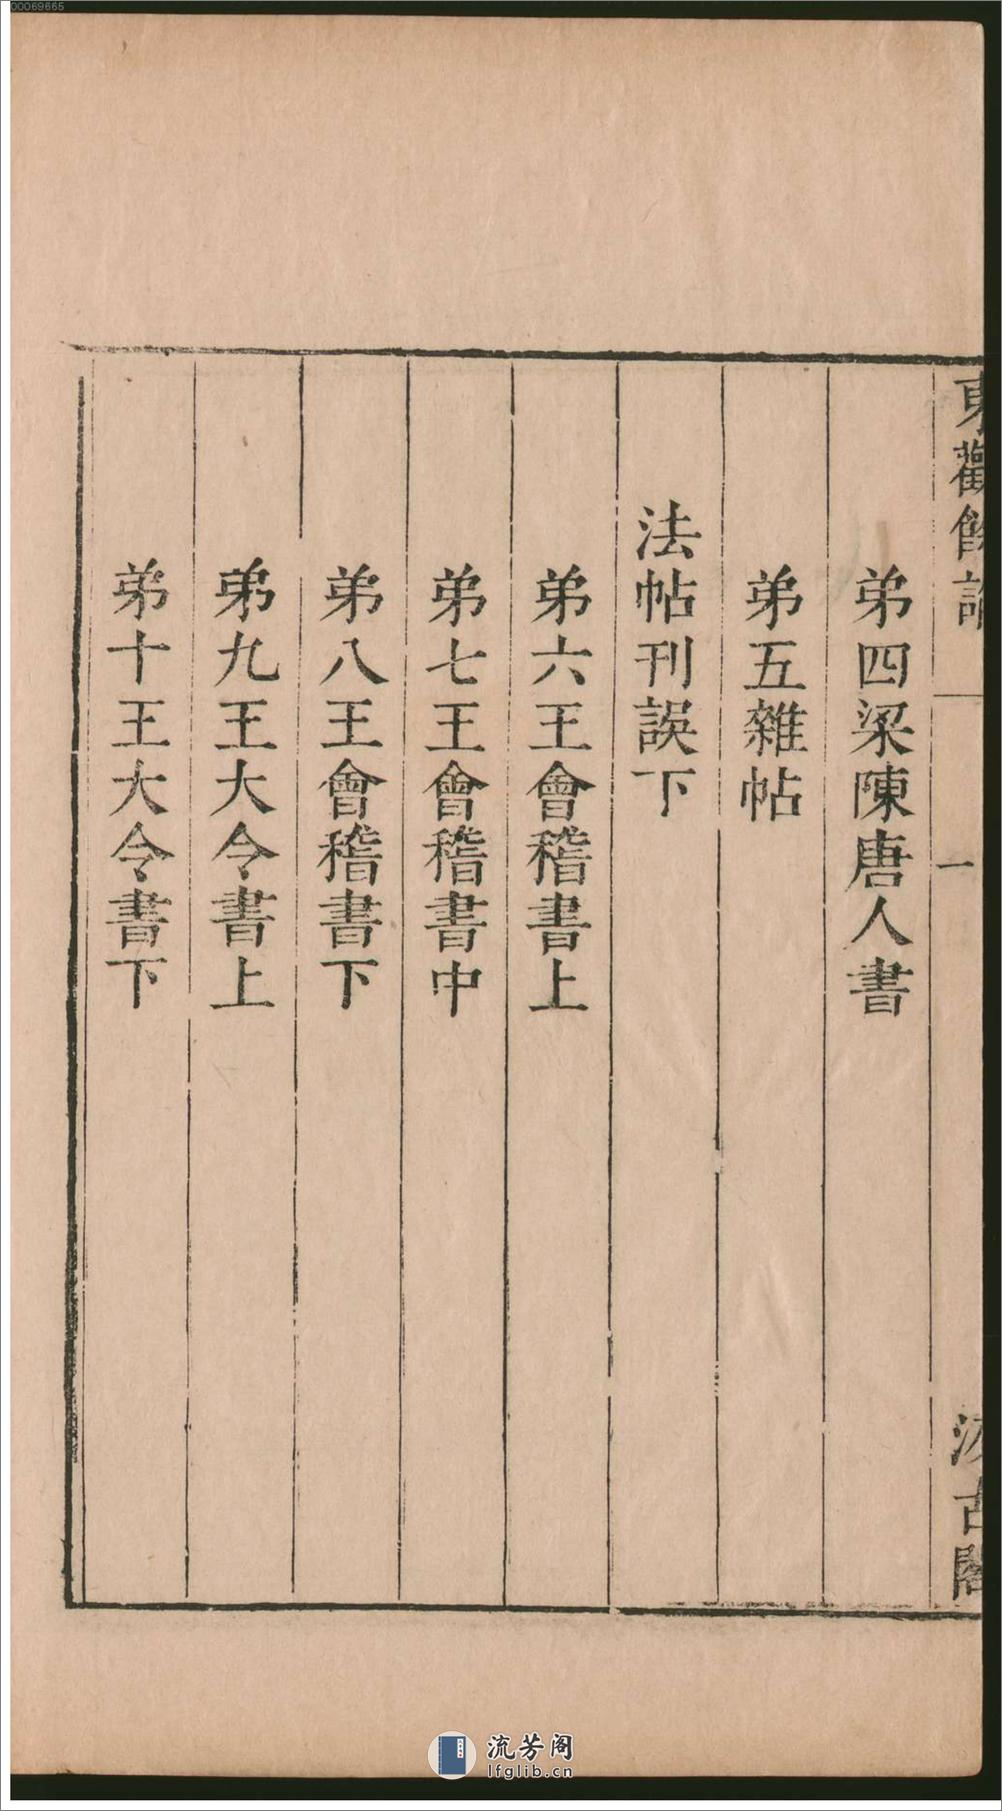 00069665
東觀餘論
一
汲古閣
弟四梁陳唐人書
弟五雜帖
法帖刊誤下
弟六王會稽書上
弟七王會稽書中
弟八王會稽書下
弟九王大令書上
弟十王大令書下
流芳阁
lfglib.cn